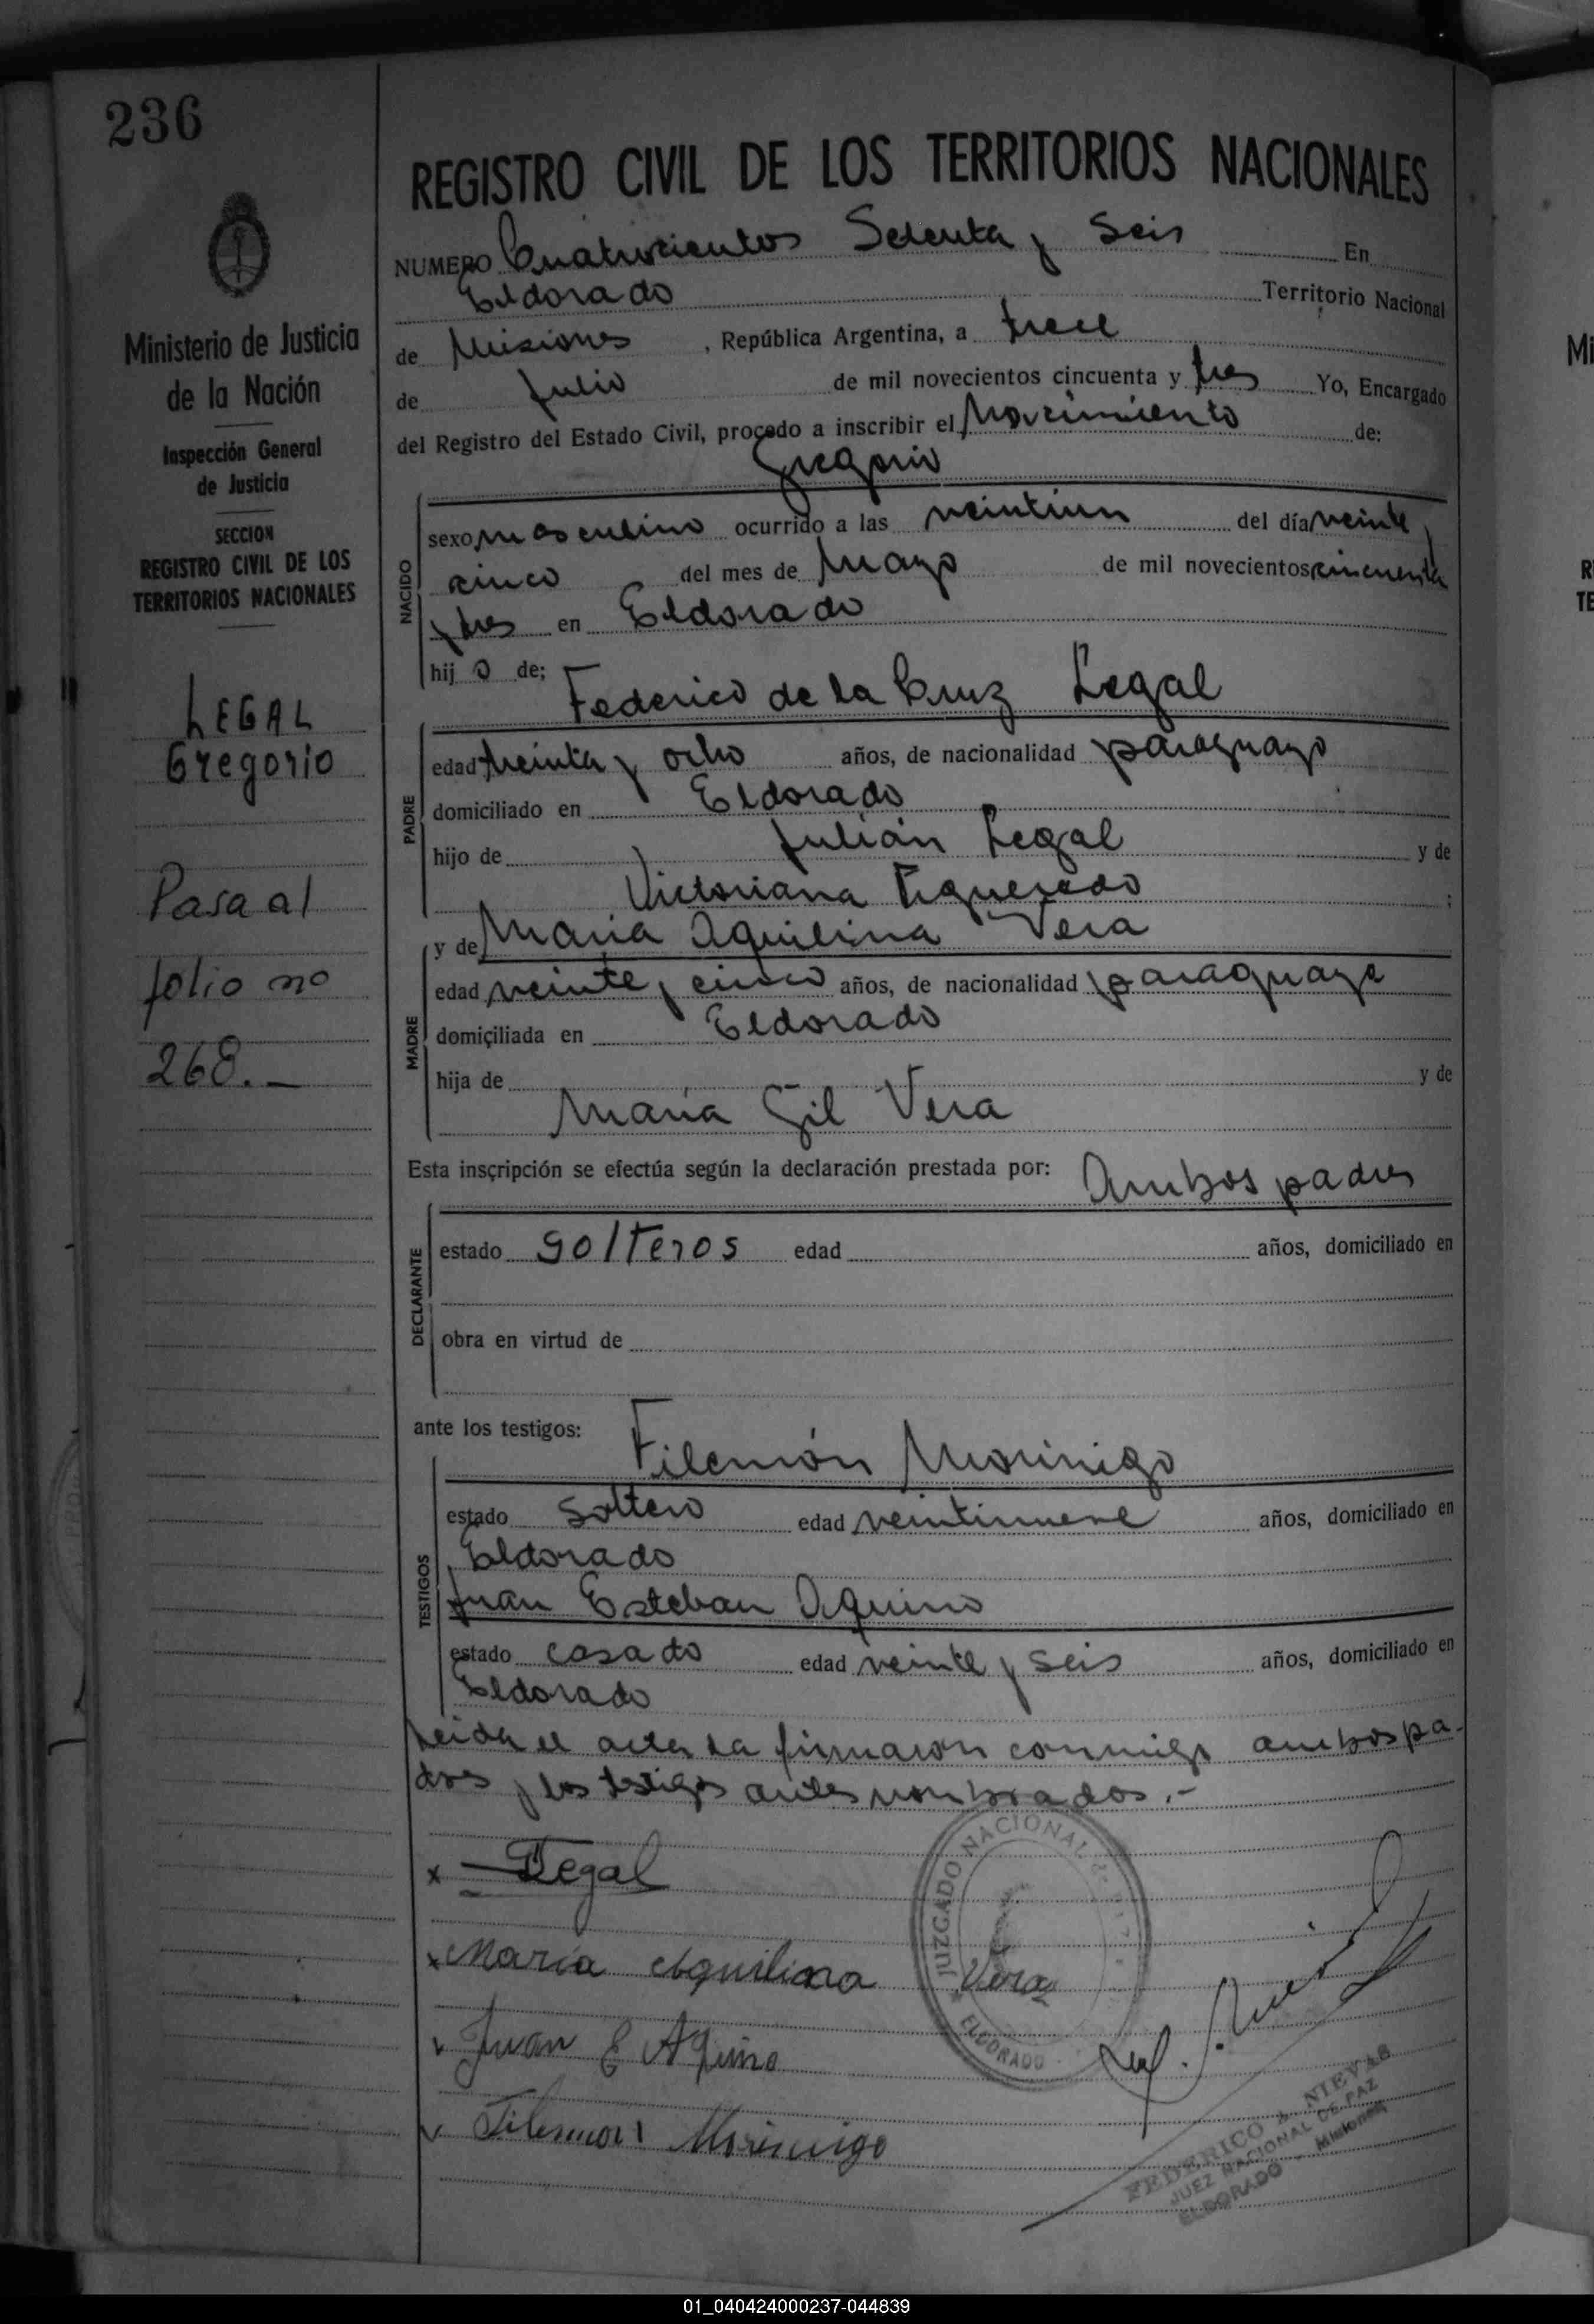 236
Ministerio de Justicia
de la Nación
Inspección General
de Justicia
SECCION
REGISTRO CIVIL DE LOS
TERRITORIOS NACIONALES
LEGAL
Gregorio
Pasa al
folio no
268.-
REGISTRO CIVIL DE LOS TERRITORIOS NACIONALES
NUMERO Cuatrocientos Setenta y Seis En
Eldorado Territorio Nacional
de Misiones , República Argentina, a trece
de Julio de mil novecientos cincuenta y tres Yo, Encargado
del Registro del Estado Civil, procedo a inscribir el Nacimiento de:
Gregorio
NACIDO
sexo masculino ocurrido a las veintiun del día veinte y
cinco del mes de Mayo de mil novecientos cincuenta
y tres en Eldorado
hij o de;
Federico de la Cruz Legal
PADRE
edad treinta y ocho años, de nacionalidad paraguayo
domiciliado en Eldorado
hijo de Julián Legal y de
Victoriana Figueredo ;
y de María Aquilina Vera
MADRE
edad veinte y cinco años, de nacionalidad paraguaya
domiciliada en Eldorado
hija de y de
María Gil Vera
Esta inscripción se efectúa según la declaración prestada por: Ambos padres
DECLARANTE
estado solteros edad años, domiciliado en
obra en virtud de
ante los testigos: Filemón Morinigo
TESTIGOS
estado soltero edad veintinueve años, domiciliado en
Eldorado
Juan Esteban Aquino
estado casado edad veinte y seis años, domiciliado en
Eldorado
Leida el acta la firmaron conmigo ambos pa-
dres y los testigos antes nombrados.-
x Legal
x María Aquilina Vera
Juan E Aquino
Filemon Morinigo
JUZGADO NACIONAL
ELDORADO
FEDERICO J. NIEVAS
JUEZ NACIONAL DE PAZ
ELDORADO - Misiones
Mi
R
TE
01_040424000237-044839